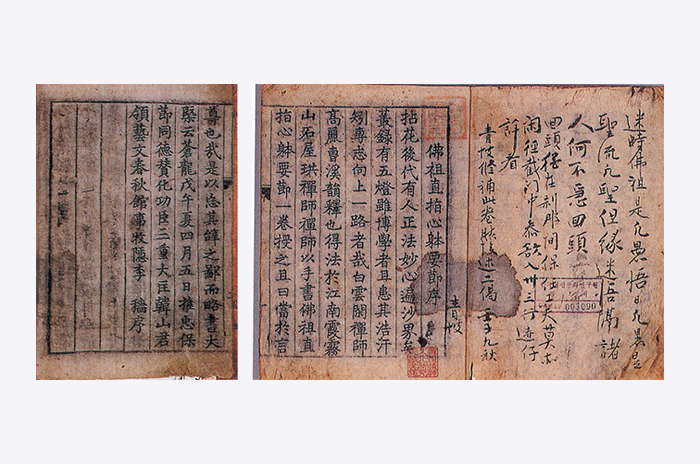 迷時佛祖是凡愚悟日凡愚是
聖流凡聖但緣迷悟隔諸
人何不急回頭
回頭猶在刹那間保任工夫莫
閑徑截門中
許看
青坡修補此卷
003090
青坡
佛祖直指心躰要節序
拈花後代有人正法妙心遍沙界矣
叢録有五燈雖博學者且患其浩汗
矧專志向上一路者哉白雲閣禪師
高麗曹溪韻釋也得法於江南霞霧
山石屋珙禪師禪師以手書佛祖直
指心躰要節一卷授之且曰當於言
尊也我是以忘其辭之鄙而略書夫
槩云蒼龍戊午夏四月五日推忠保
節同德賛化功臣三重大匡韓山君
領藝文春秋館事牧隱李穡序